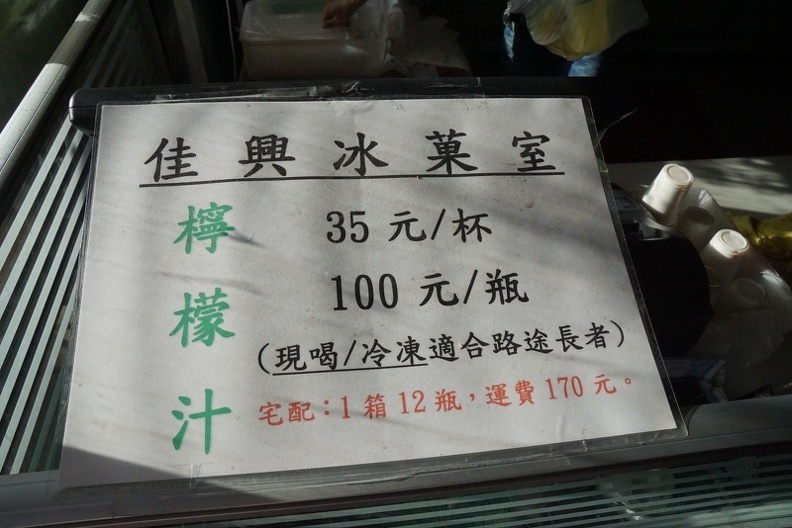 佳興冰菓室
檸檬汁
35 元/杯
100 元/瓶
(現喝/冷凍適合路途長者)
宅配：1 箱 12 瓶，運費 170 元。